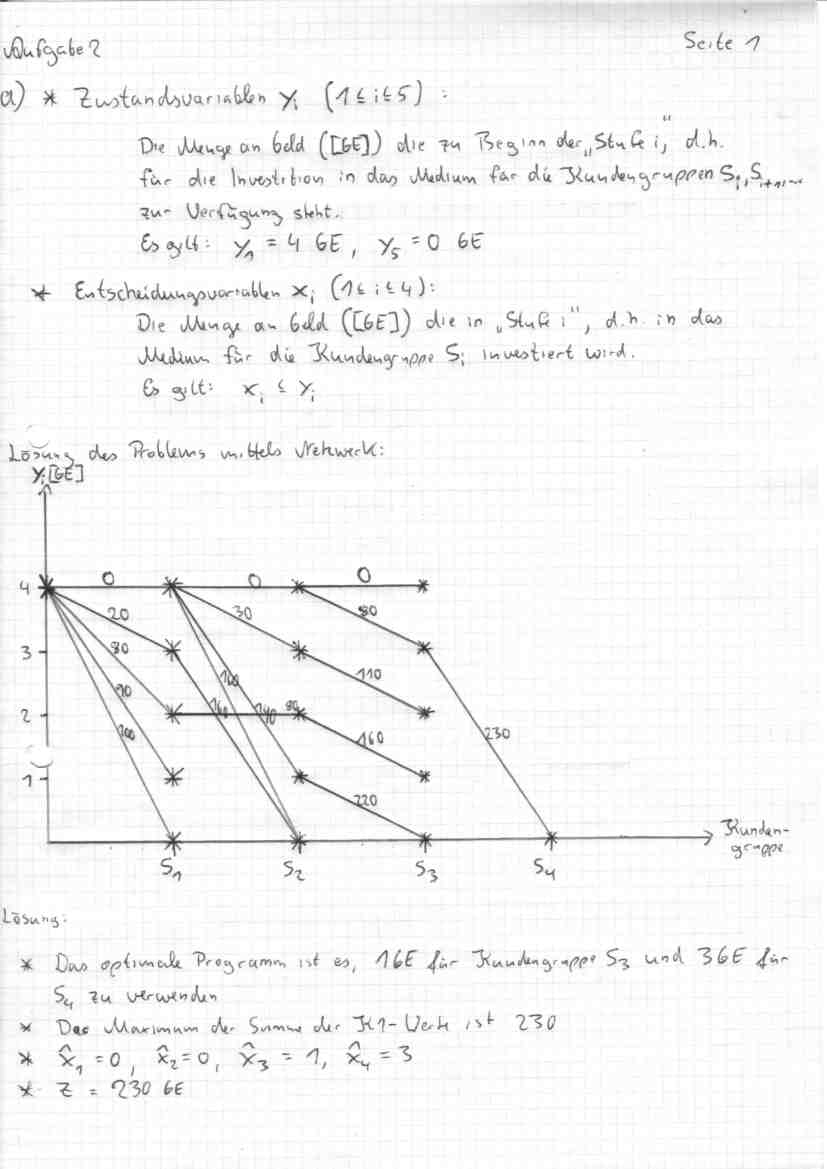 Aufgabe 2
Seite 1
a) * Zustandsvariablen yi (1≤i≤5) :
Die Menge an Geld ([GE]) die zu Beginn der „Stufe i", d.h.
für die Investition in das Medium für die Kundengruppen Si, Si+1, ...
zur Verfügung steht.
Es gilt: y1 = 4 GE, y5 = 0 GE
* Entscheidungsvariablen xi (1≤i≤4):
Die Menge an Geld ([GE]) die in „Stufe i", d.h. in das
Medium für die Kundengruppe Si investiert wird.
Es gilt: xi ≤ yi
Lösung des Problems mittels Netzwerk:
yi [GE]
4
0
0
0
20
30
80
3
80
90
100
110
2
100
160
140
80
160
230
1
220
Kunden-
gruppe
S1
S2
S3
S4
Lösung:
* Das optimale Programm ist es, 1GE für Kundengruppe S3 und 3GE für
S4 zu verwenden
* Das Maximum der Summe der K1-Werte ist 230
* x̂1 = 0, x̂2 = 0, x̂3 = 1, x̂4 = 3
* Z = 230 GE